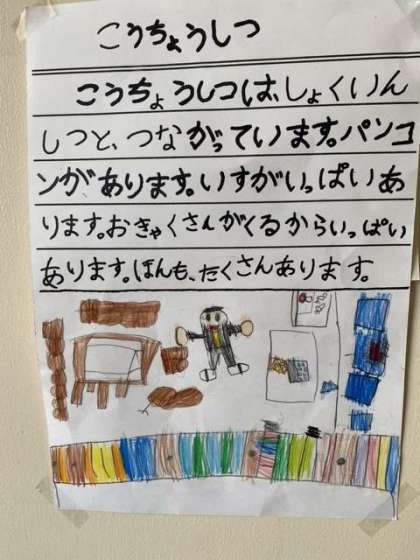 こうちょうしつ
こうちょうしつは、しょくいん
しつと、つながっています。パンコ
ンがあります。いすがいっぱいあ
ります。おきゃくさんがくるからいっぱい
あります。ほんも、たくさんあります。